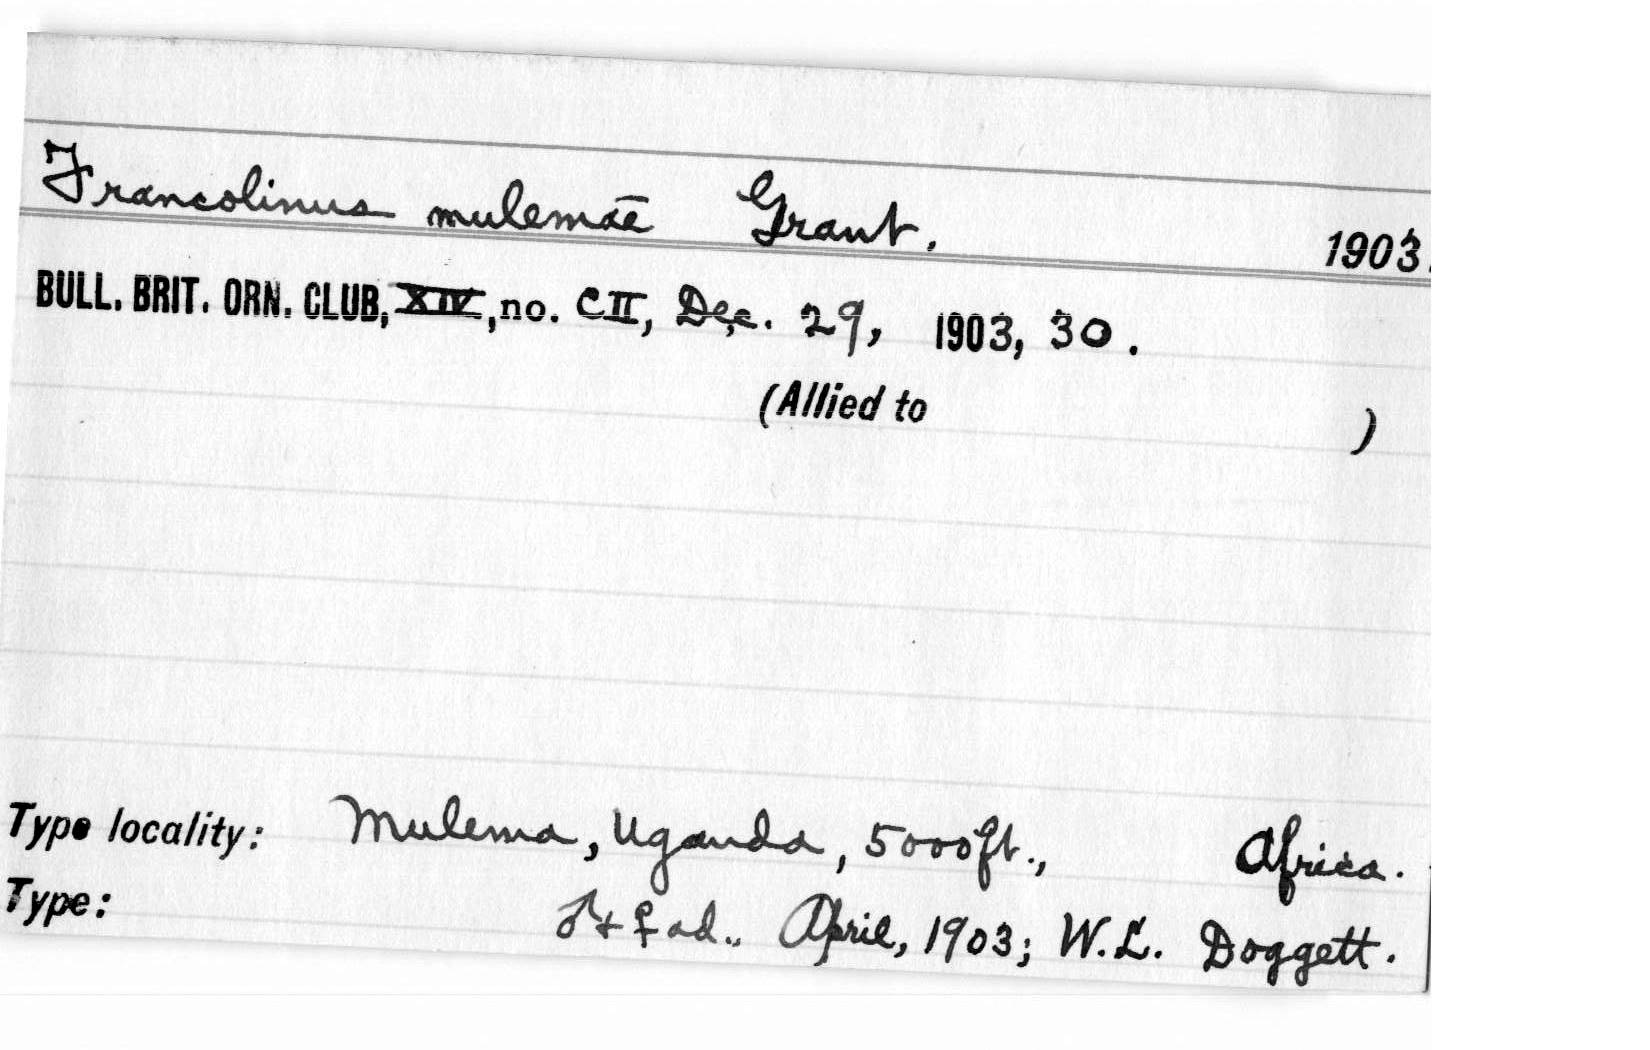 Francolinus mulemae Grant. 1903.
BULL. BRIT. ORN. CLUB, XIV, no. CII, Dec. 29, 1903, 30.
(Allied to )
Type locality: Mulema, Uganda, 5000ft., Africa.
Type: ♂ + ♀ ad., April, 1903; W.L. Doggett.